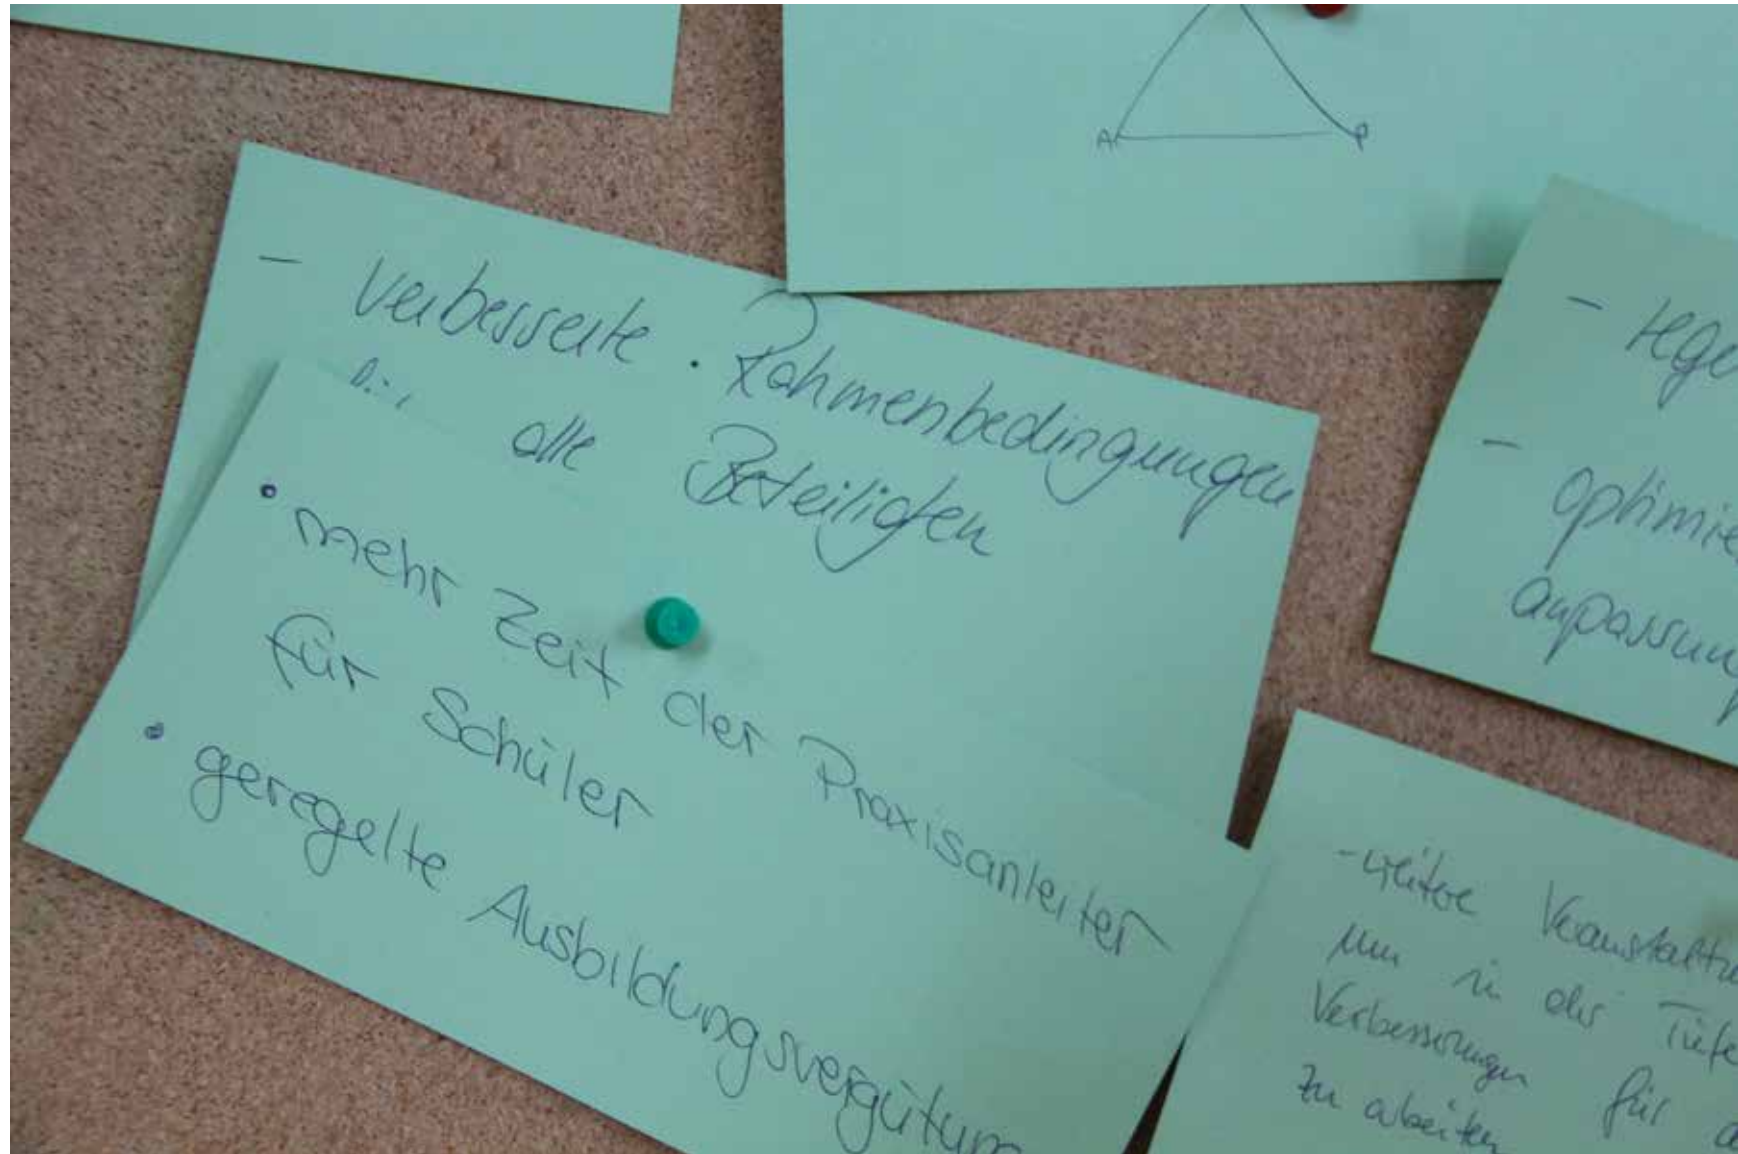 A
P
- verbesserte Rahmenbedingungen
alle Beteiligten
• mehr Zeit der Praxisanleiter
für Schüler
• geregelte Ausbildungsvergütung
- rege
- optimie
anpassung
- weitere Veranstaltu
um in die Tiefe
Verbesserungen für a
zu arbeiten